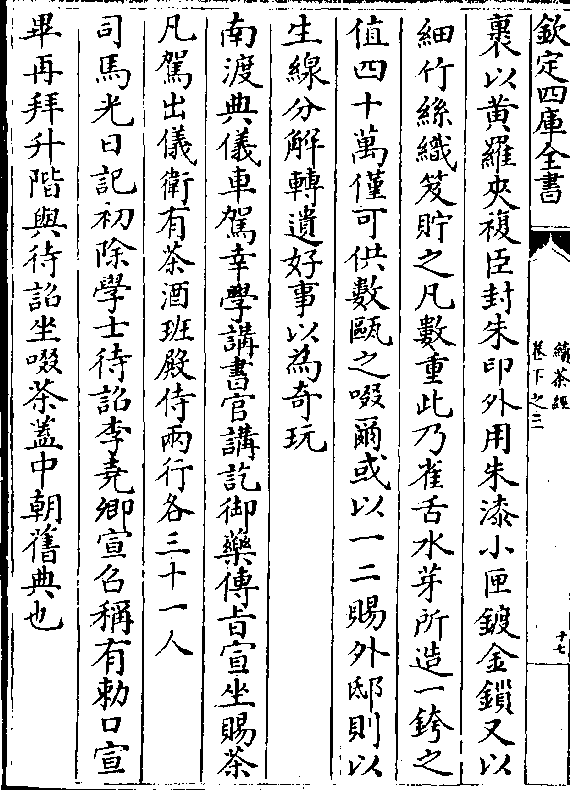 欽定四庫全書
續茶經
卷下之三
十七
裹以黃羅夾複臣封朱印外用朱漆小匣鍍金鎖又以
細竹絲織笈貯之凡數重此乃雀舌水芽所造一銙之
值四十萬僅可供數甌之啜爾或以一二賜外邸則以
生線分解轉遺好事以為奇玩
南渡典儀車駕幸學講書官講訖御藥傳旨宣坐賜茶
凡駕出儀衛有茶酒班殿侍兩行各三十一人
司馬光日記初除學士待詔李堯卿宣召稱有勅口宣
畢再拜升階與待詔坐啜茶蓋中朝舊典也